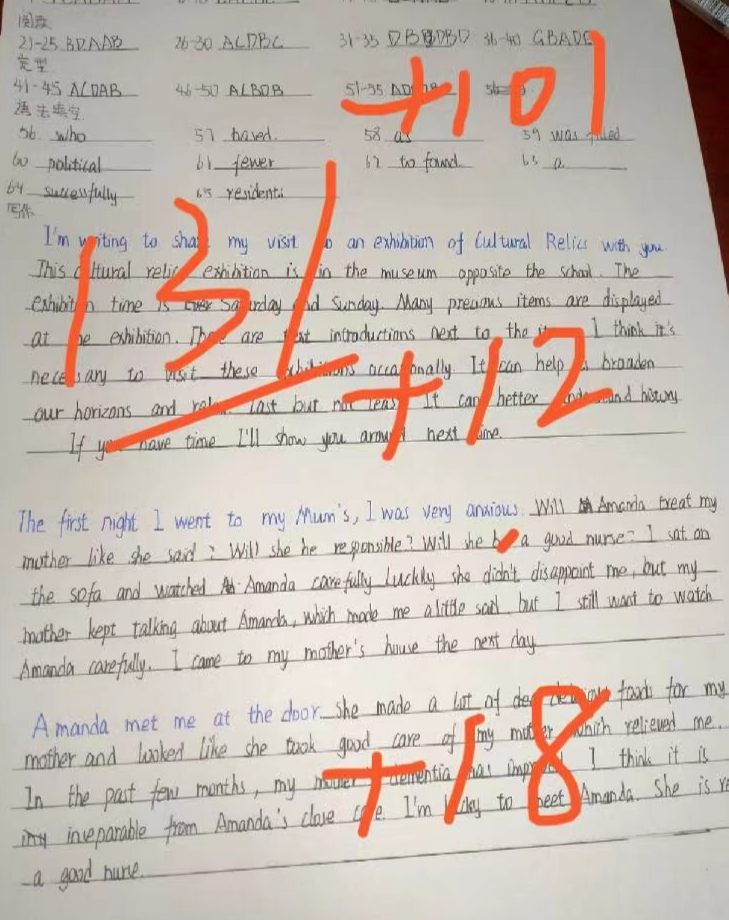 阅读
21-25 BDAAB 26-30 ALDBC 31-35 36-40 GBADE
完型
41-45 ACDAB 46-50 ALBDB 51-55
+101
语法填空
56. who 57 based. 58 as 59 was
60 political 61 fewer 62 to found 63 a
64 successfully 65 residents
写作
131
I'm writing to share my visit to an exhibition of Cultural Relics with you.
This cultural relic exhibition is in the museum opposite the school. The
exhibition time is Saturday and Sunday. Many precious items are displayed
at the exhibition. There are text introductions next to the I think it's
necessary to visit these exhibitions occasionally It can help broaden
our horizons and relax Last but not least It can better understand history
+12
If you have time I'll show you around next time.
The first night I went to my Mum's, I was very anxious. Will Amanda treat my
mother like she said? Will she be responsible? Will she be a good nurse? I sat on
the sofa and watched Amanda carefully Luckly she didn't disappoint me, but my
mother kept talking about Amanda, which made me a little sad, but I still want to watch
Amanda carefully. I came to my mother's house the next day
Amanda met me at the door she made a lot of foods for my
mother and looked like she took good care of my mother which relieved me.
In the past few months, my mother dementia has I think it is
inseparable from Amanda's close care I'm lucky to meet Amanda. She is
+18
a good nurse.